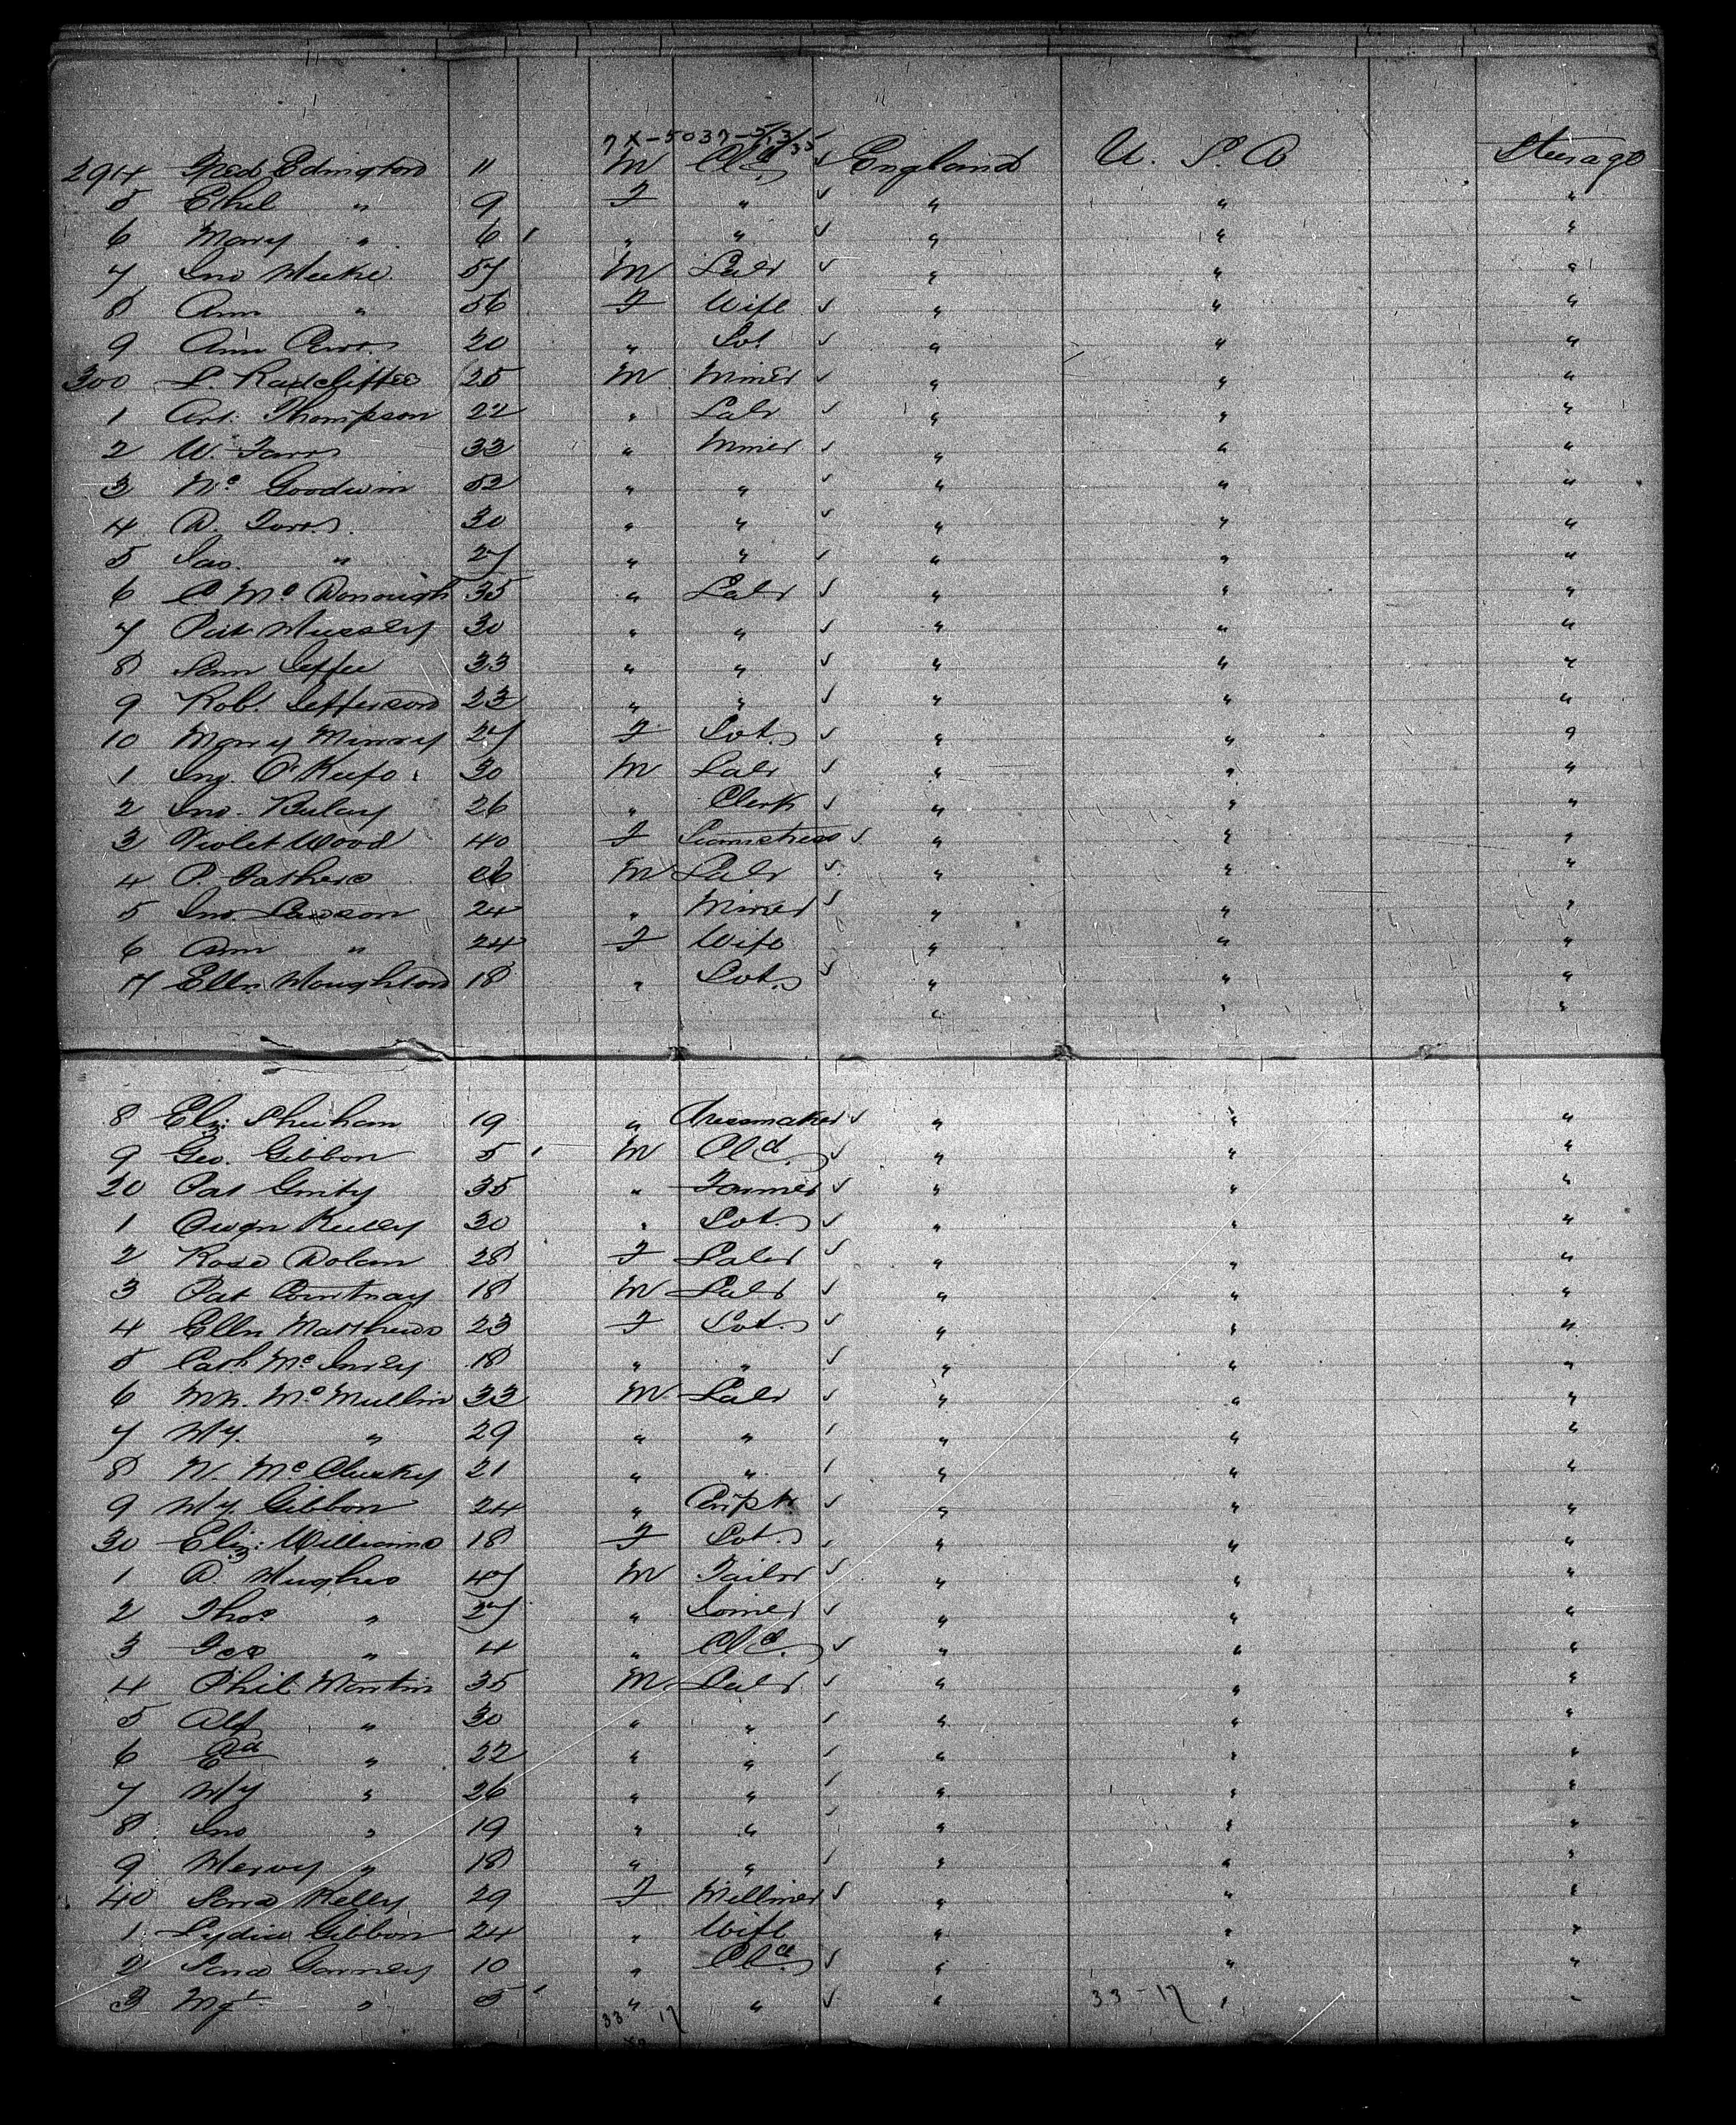 7X-5037-5/13/35
2914 Fred Edington 11 M Cld England U. S. A Steerage
5 Ethel " 9 F " " " "
6 Mary " 6 " " " " "
7 Jno 57 M Labr " " "
8 Ann " 56 F Wife " " "
9 Ann 20 " Svt " " "
300 L. Radcliffe 25 M Miner " " "
1 Art. Thompson 22 " Labr " " "
2 W. 33 " Miner " " "
3 Goodwin 52 " " " " "
4 30 " " " " "
5 Jas. " 27 " " " " "
6 Mc Donough 35 " Labr " " "
7 Pat 30 " " " " "
8 33 " " " " "
9 Rob. Jefferson 23 " " " " "
10 Mary 27 F Svt. " " "
1 Jno. O'Keefe 30 M Labr " " "
2 Jno. 26 " Clerk " " "
3 Violet Wood 40 F Seamstress " " "
4 P. M Labr " " "
5 Jno. Lawson 24 " Miner " " "
6 Ann " 24 F Wife " " "
17 Elln Houghton 18 " Svt. " " "
" " "
8 Eliz: Sheehan 19 " Dressmaker " " "
9 Geo. Gibbon 5 M Cld " " "
20 Pat 35 " Farmer " " "
1 Owen 30 " Svt. " " "
2 Rose Dolan 28 F Labr " " "
3 Pat Courtnay 18 M Labr " " "
4 Elln Matthews 23 F Svt. " " "
5 Cath. 18 " " " " "
6 Mk. Mc Mullin 33 M Labr " " "
7 Hy. " 29 " " " " "
8 N. Mc Clusky 21 " " " " "
9 Hy. Gibbon 24 " " " "
30 Eliz: Williams 18 F Svt. " " "
1 D. Hughes 47 M Tailor " " "
2 Thos " 27 " Joiner " " "
3 Geo " 4 " Cld. " " "
4 Phil Martin 35 M Labr " " "
5 Alf " 30 " " " " "
6 Ed " 22 " " " " "
7 Hy " 26 " " " " "
8 Jno " 19 " " " " "
9 " 18 " " " " "
40 Sara Kelly 29 F Milliner " " "
1 Lydia Gibbon 24 " Wife " " "
2 Sara 10 " Cld. " " "
3 Mgt " 5 " " " " "
33 17 33-17